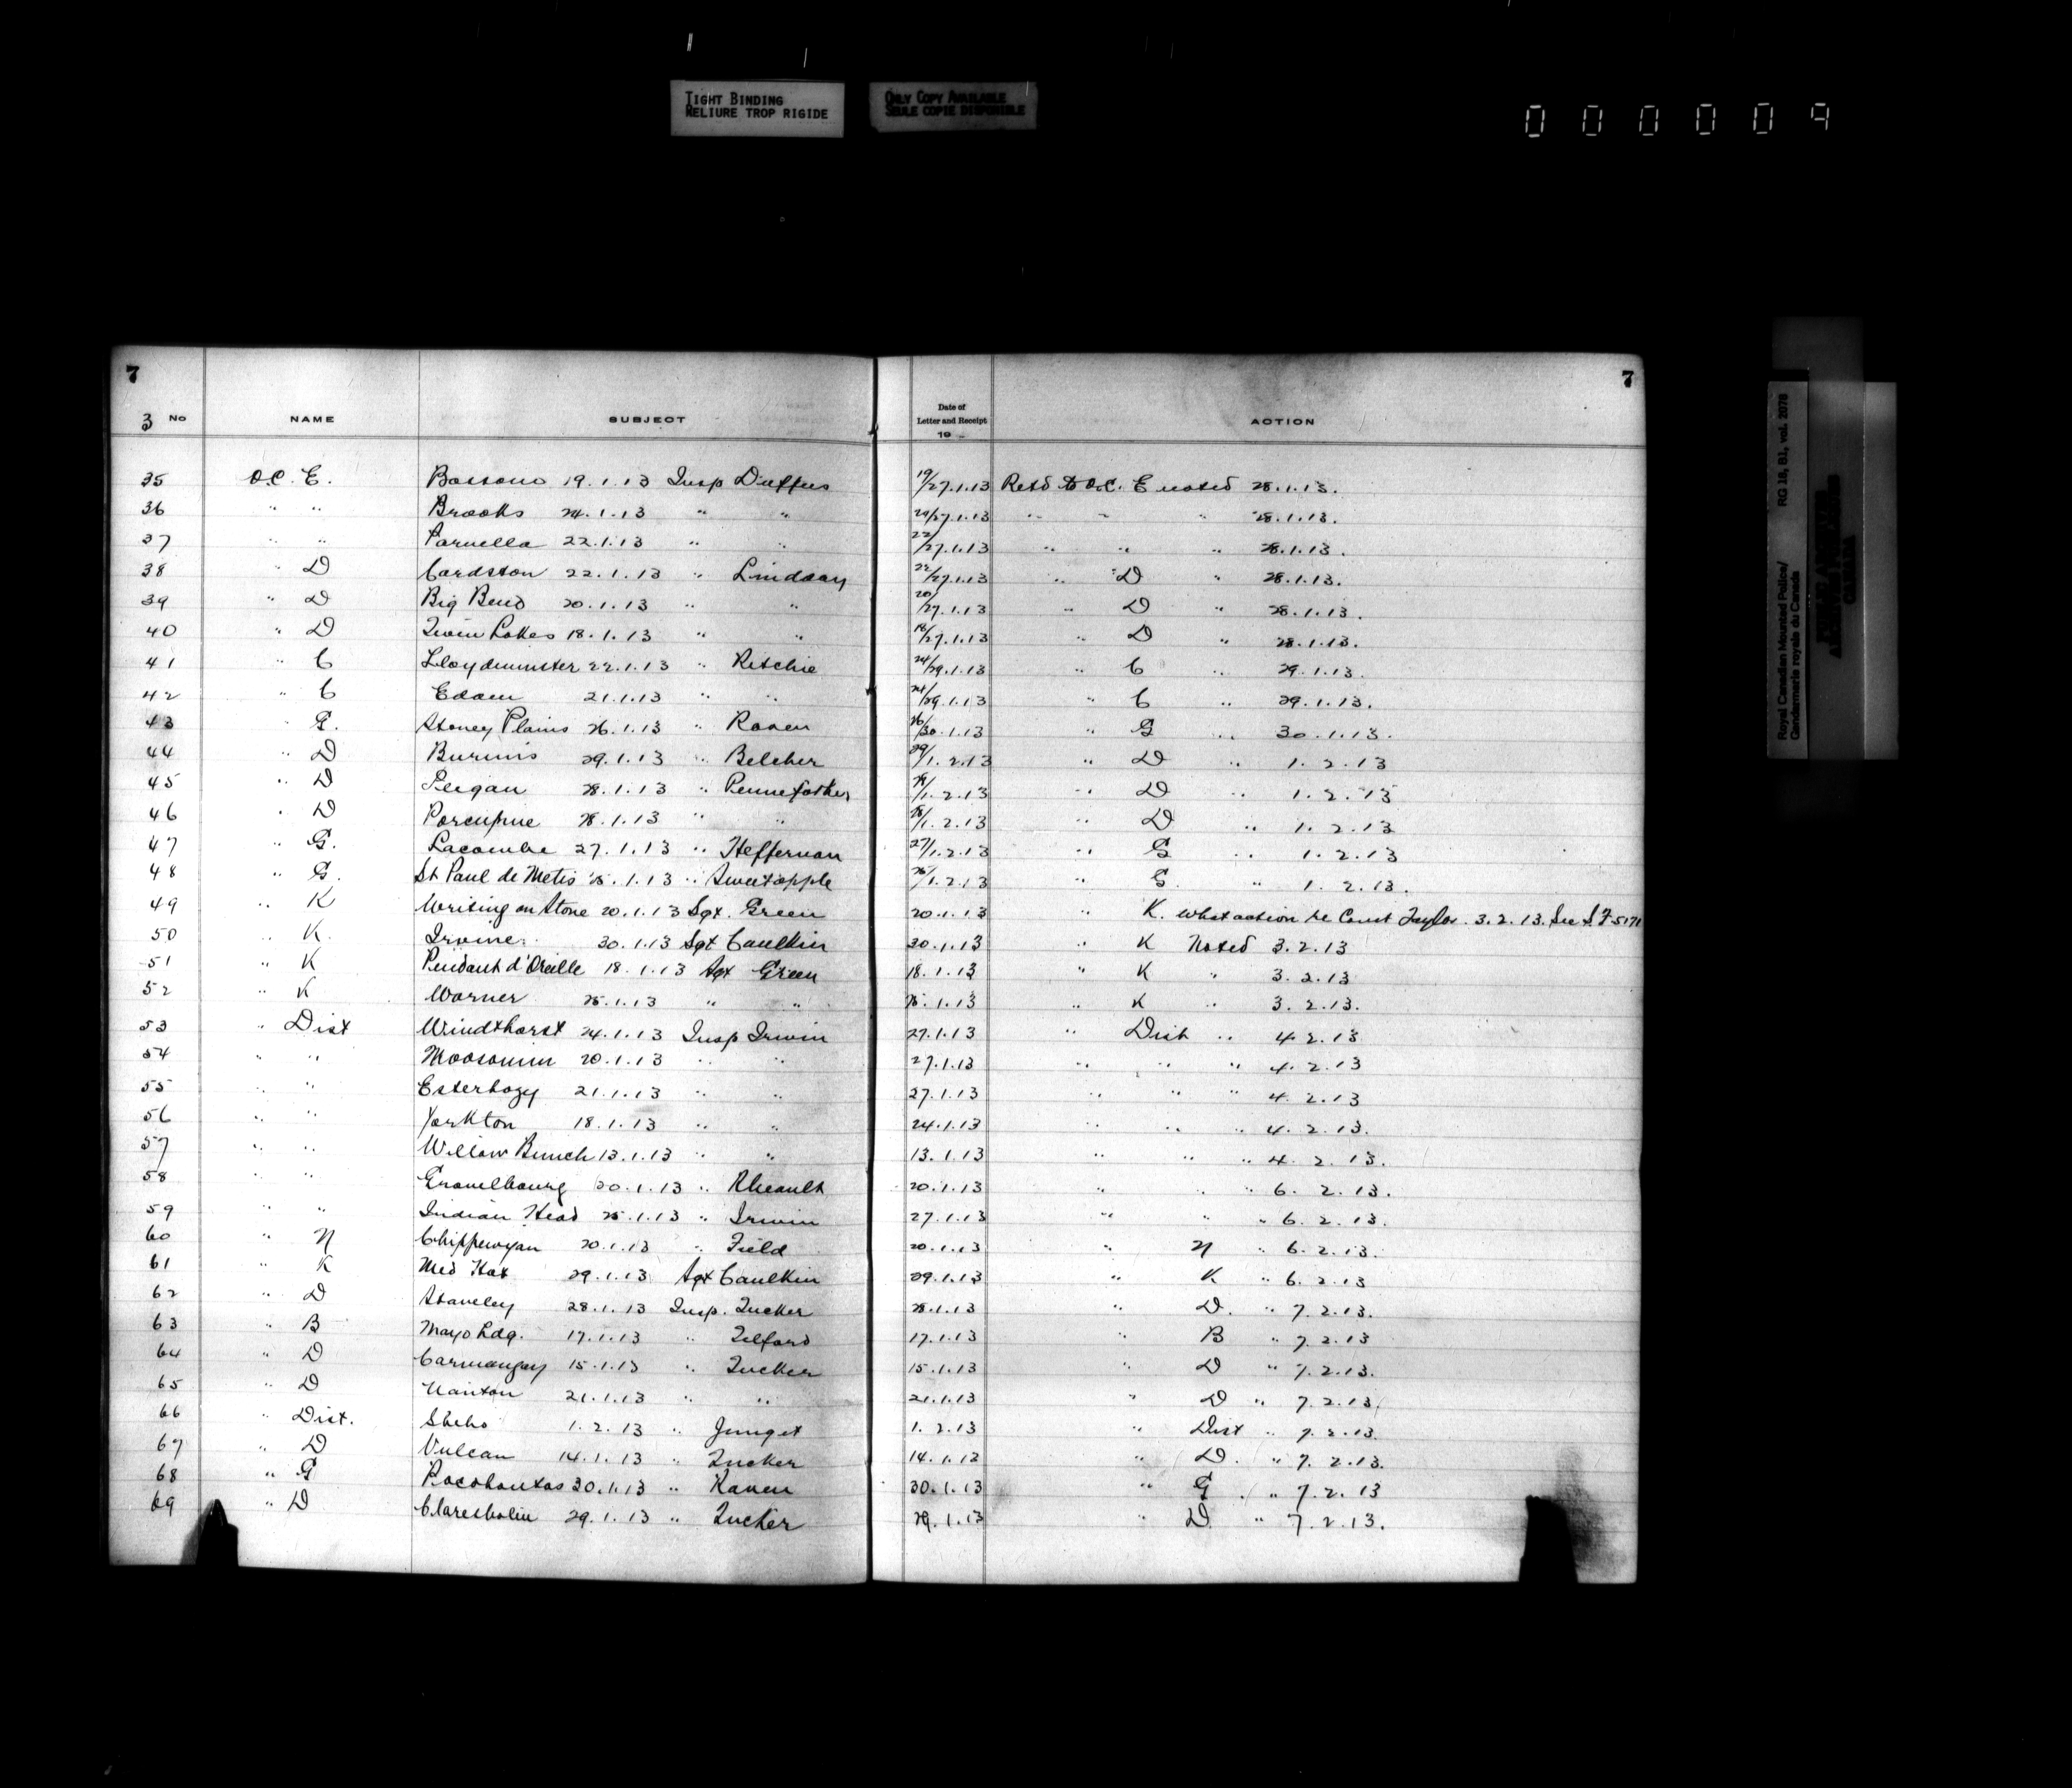 TIGHT BINDING
RELIURE TROP RIGIDE
ONLY COPY AVAILABLE
SEULE COPIE DISPONIBLE
000009
7 7
3 No NAME SUBJECT Date of Letter and Receipt 19 ACTION
35 O.C. E. Bassano 19.1.13 Insp Duffus 19/27.1.13 Retd to O.C. E noted 28.1.13.
36 " " Brooks 24.1.13 " " 24/27.1.13 " " " 28.1.13.
37 " " Parvella 22.1.13 " " 22/27.1.13 " " " 28.1.13.
38 " D Cardston 22.1.13 " Lindsay 22/27.1.13 " D " 28.1.13.
39 " D Big Bend 20.1.13 " " 20/27.1.13 " D " 28.1.13.
40 " D Twin Lakes 18.1.13 " " 18/27.1.13 " D " 28.1.13.
41 " C Lloydminster 22.1.13 " Ritchie 24/29.1.13 " C " 29.1.13.
42 " C Edam 21.1.13 " " 24/29.1.13 " C " 29.1.13.
43 " G. Stoney Plains 26.1.13 " Raven 26/30.1.13 " G " 30.1.13.
44 " D Burmis 29.1.13 " Belcher 29/1.2.13 " D " 1.2.13
45 " D Peigan 28.1.13 " Pennefather /1.2.13 " D " 1.2.13
46 " D Porcupine 28.1.13 " " 28/1.2.13 " D " 1.2.13
47 " G. Lacombe 27.1.13 " Heffernan 27/1.2.13 " G " 1.2.13
48 " G. St Paul de Metis 25.1.13 " Sweetapple /1.2.13 " G. " 1.2.13.
49 " K Writing on Stone 20.1.13 Sgt. Green 20.1.13 " K. What action re Const Taylor. 3.2.13. See S.F 5171
50 " K. Irvine 30.1.13 Sgt Caulkin 30.1.13 " K Noted 3.2.13
51 " K Pendant d'Oreille 18.1.13 Sgt Green 18.1.13 " K " 3.2.13
52 " K Warner 25.1.13 " " 25.1.13 " K " 3.2.13.
53 " Dist Windthorst 24.1.13 Insp Irwin 27.1.13 " Dist " 4.2.13
54 " " Moosomin 20.1.13 " " 27.1.13 " " " 4.2.13
55 " " Esterhazy 21.1.13 " " 27.1.13 " " " 4.2.13
56 " " Yorkton 18.1.13 " " 24.1.13 " " " 4.2.13.
57 " " Willow Bunch 13.1.13 " " 13.1.13 " " " 4.2.13.
58 " " Gravelbourg 20.1.13 " Rheault 20.1.13 " " " 6.2.13.
59 " " Indian Head 25.1.13 " Irwin 27.1.13 " " " 6.2.13.
60 " N Chippewyan 20.1.13 " Field 20.1.13 " N " 6.2.13.
61 " K Med Hat 29.1.13 Sgt Caulkin 29.1.13 " K " 6.2.13
62 " D Staveley 28.1.13 Insp. Tucker 28.1.13 " D. " 7.2.13.
63 " B Mayo Ldg. 17.1.13 " Telford 17.1.13 " B " 7.2.13
64 " D Carmangay 15.1.13 " Tucker 15.1.13 " D " 7.2.13.
65 " D Nanton 21.1.13 " " 21.1.13 " D " 7.2.13
66 " Dist. Sheho 1.2.13 " Junget 1.2.13 " Dist " 7.2.13.
67 " D Vulcan 14.1.13 " Tucker 14.1.13 " D. " 7.2.13.
68 " G Pocohontas 30.1.13 " Raven 30.1.13 " G " 7.2.13
69 " D Claresholm 29.1.13 " Tucker 29.1.13 " D " 7.2.13.
Royal Canadian Mounted Police/ RG 18, B1, vol. 2078
Gendarmerie royale du Canada